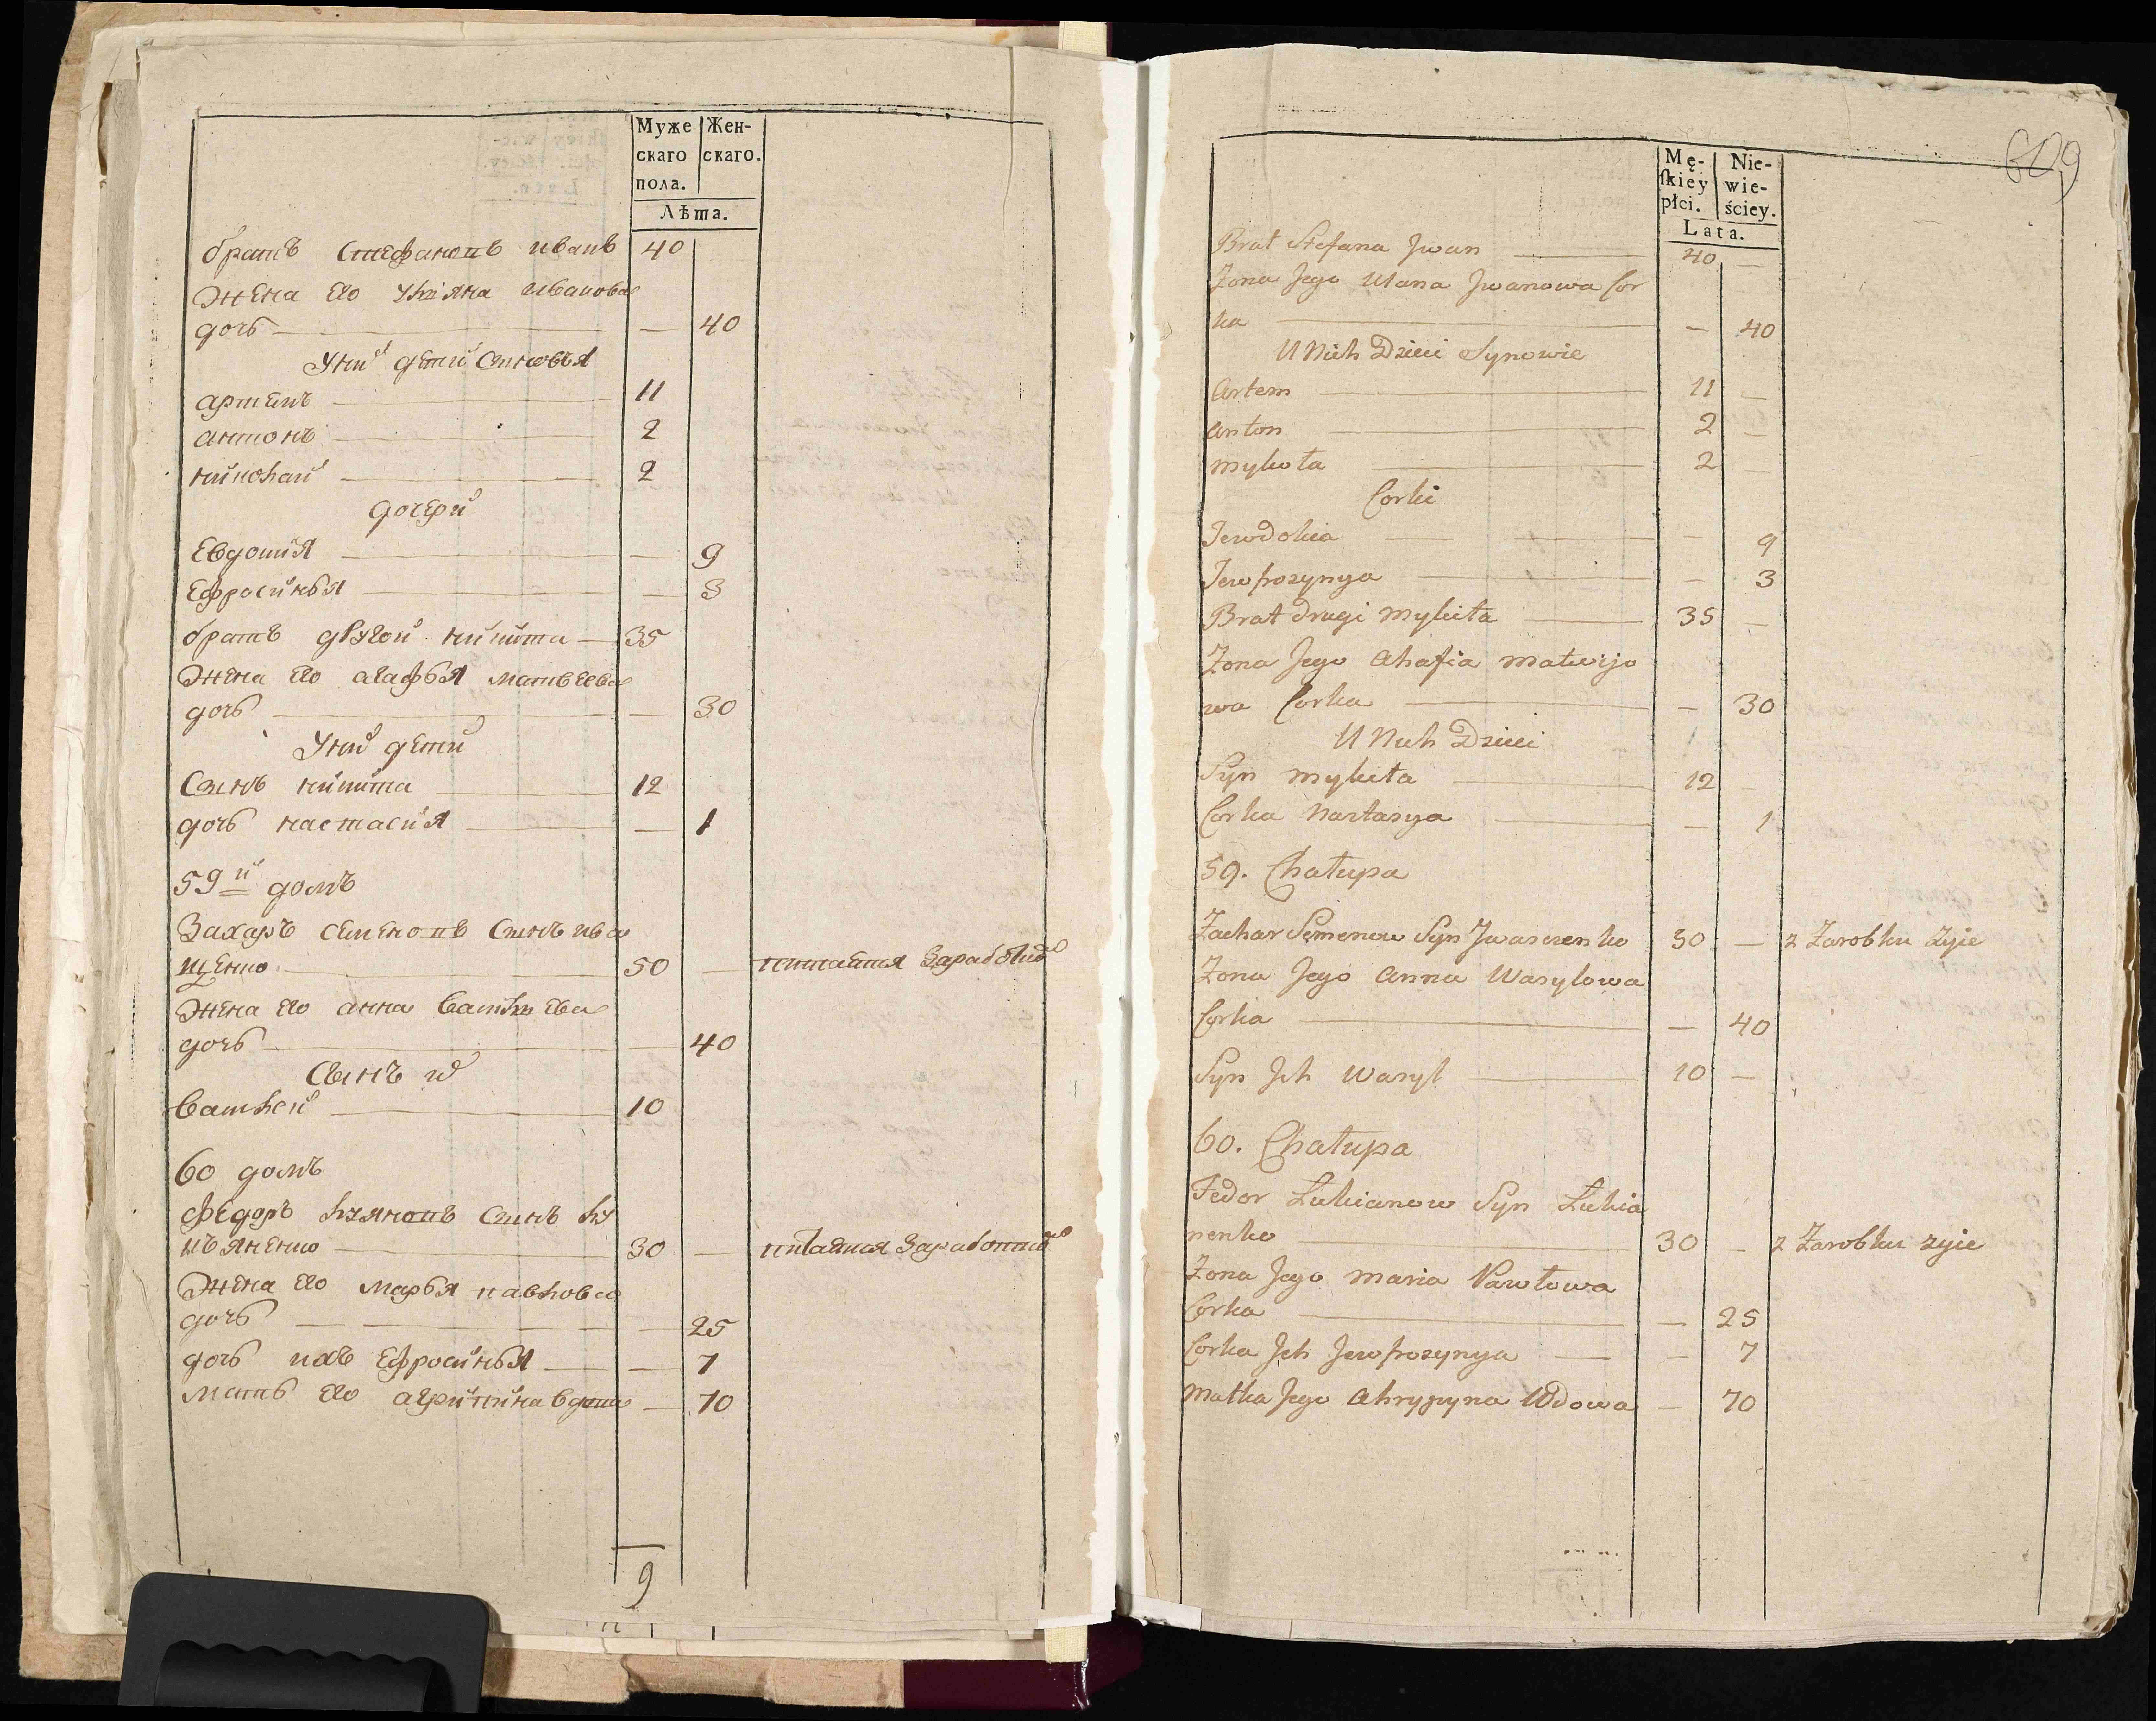 Муже
скаго
пола.
Жен-
скаго.
Лѣта.
братъ Стефановъ иванъ 40
жена его улiяна иванова
дочь — 40
У них дети Сыновья
артемъ 11
антонъ 2
николай 2
дочери
Евдокия — 9
Ефросинья — 3
братъ другой никита 35
жена его агафья матвеева
дочь — 30
У них дети
Сынъ никита 12
дочь настасия — 1
59й домъ
Захаръ семеновъ Сынъ ива
щенко 50 — питается Заработкою
жена его анна василиева
дочь — 40
Сынъ их
василей 10
60 домъ
Федоръ лукяновъ Сынъ лу
къяненко 30 — питается Заработкою
жена его марья павлова
дочь — 25
дочь ихъ Ефросинья — 7
мать его агрипина вдова — 70
9
609
Mę-
ſkiey
płci.
Nie-
wie-
ściey.
Lata.
Brat Stefana Jwan 40 —
Zona Jego Ulana Jwanowa Cor
ka — 40
U Nich Dzieci Synowie
Artem 11 —
Anton 2 —
Mykoła 2 —
Corki
Jewdokia — 9
Jewfrozynya — 3
Brat drugi Mykita 35 —
Zona Jego Ahafia Matwijo
wa Corka — 30
U Nich Dzieci
Syn Mykita 12 —
Corka Nastasya — 1
59. Chałupa
Zachar Semenow Syn Jwaszczenko 50 — z Zarobku Zyie
Zona Jego Anna Wasylowa
Corka — 40
Syn Jch Wasyl 10 —
60. Chałupa
Fedor Łukianow Syn Łukia
nenko 30 — z Zarobku zyie
Zona Jego Maria Pawłowa
Corka — 25
Corka Jch Jewfrozynya — 7
Matka Jego Ahrypyna Wdowa — 70